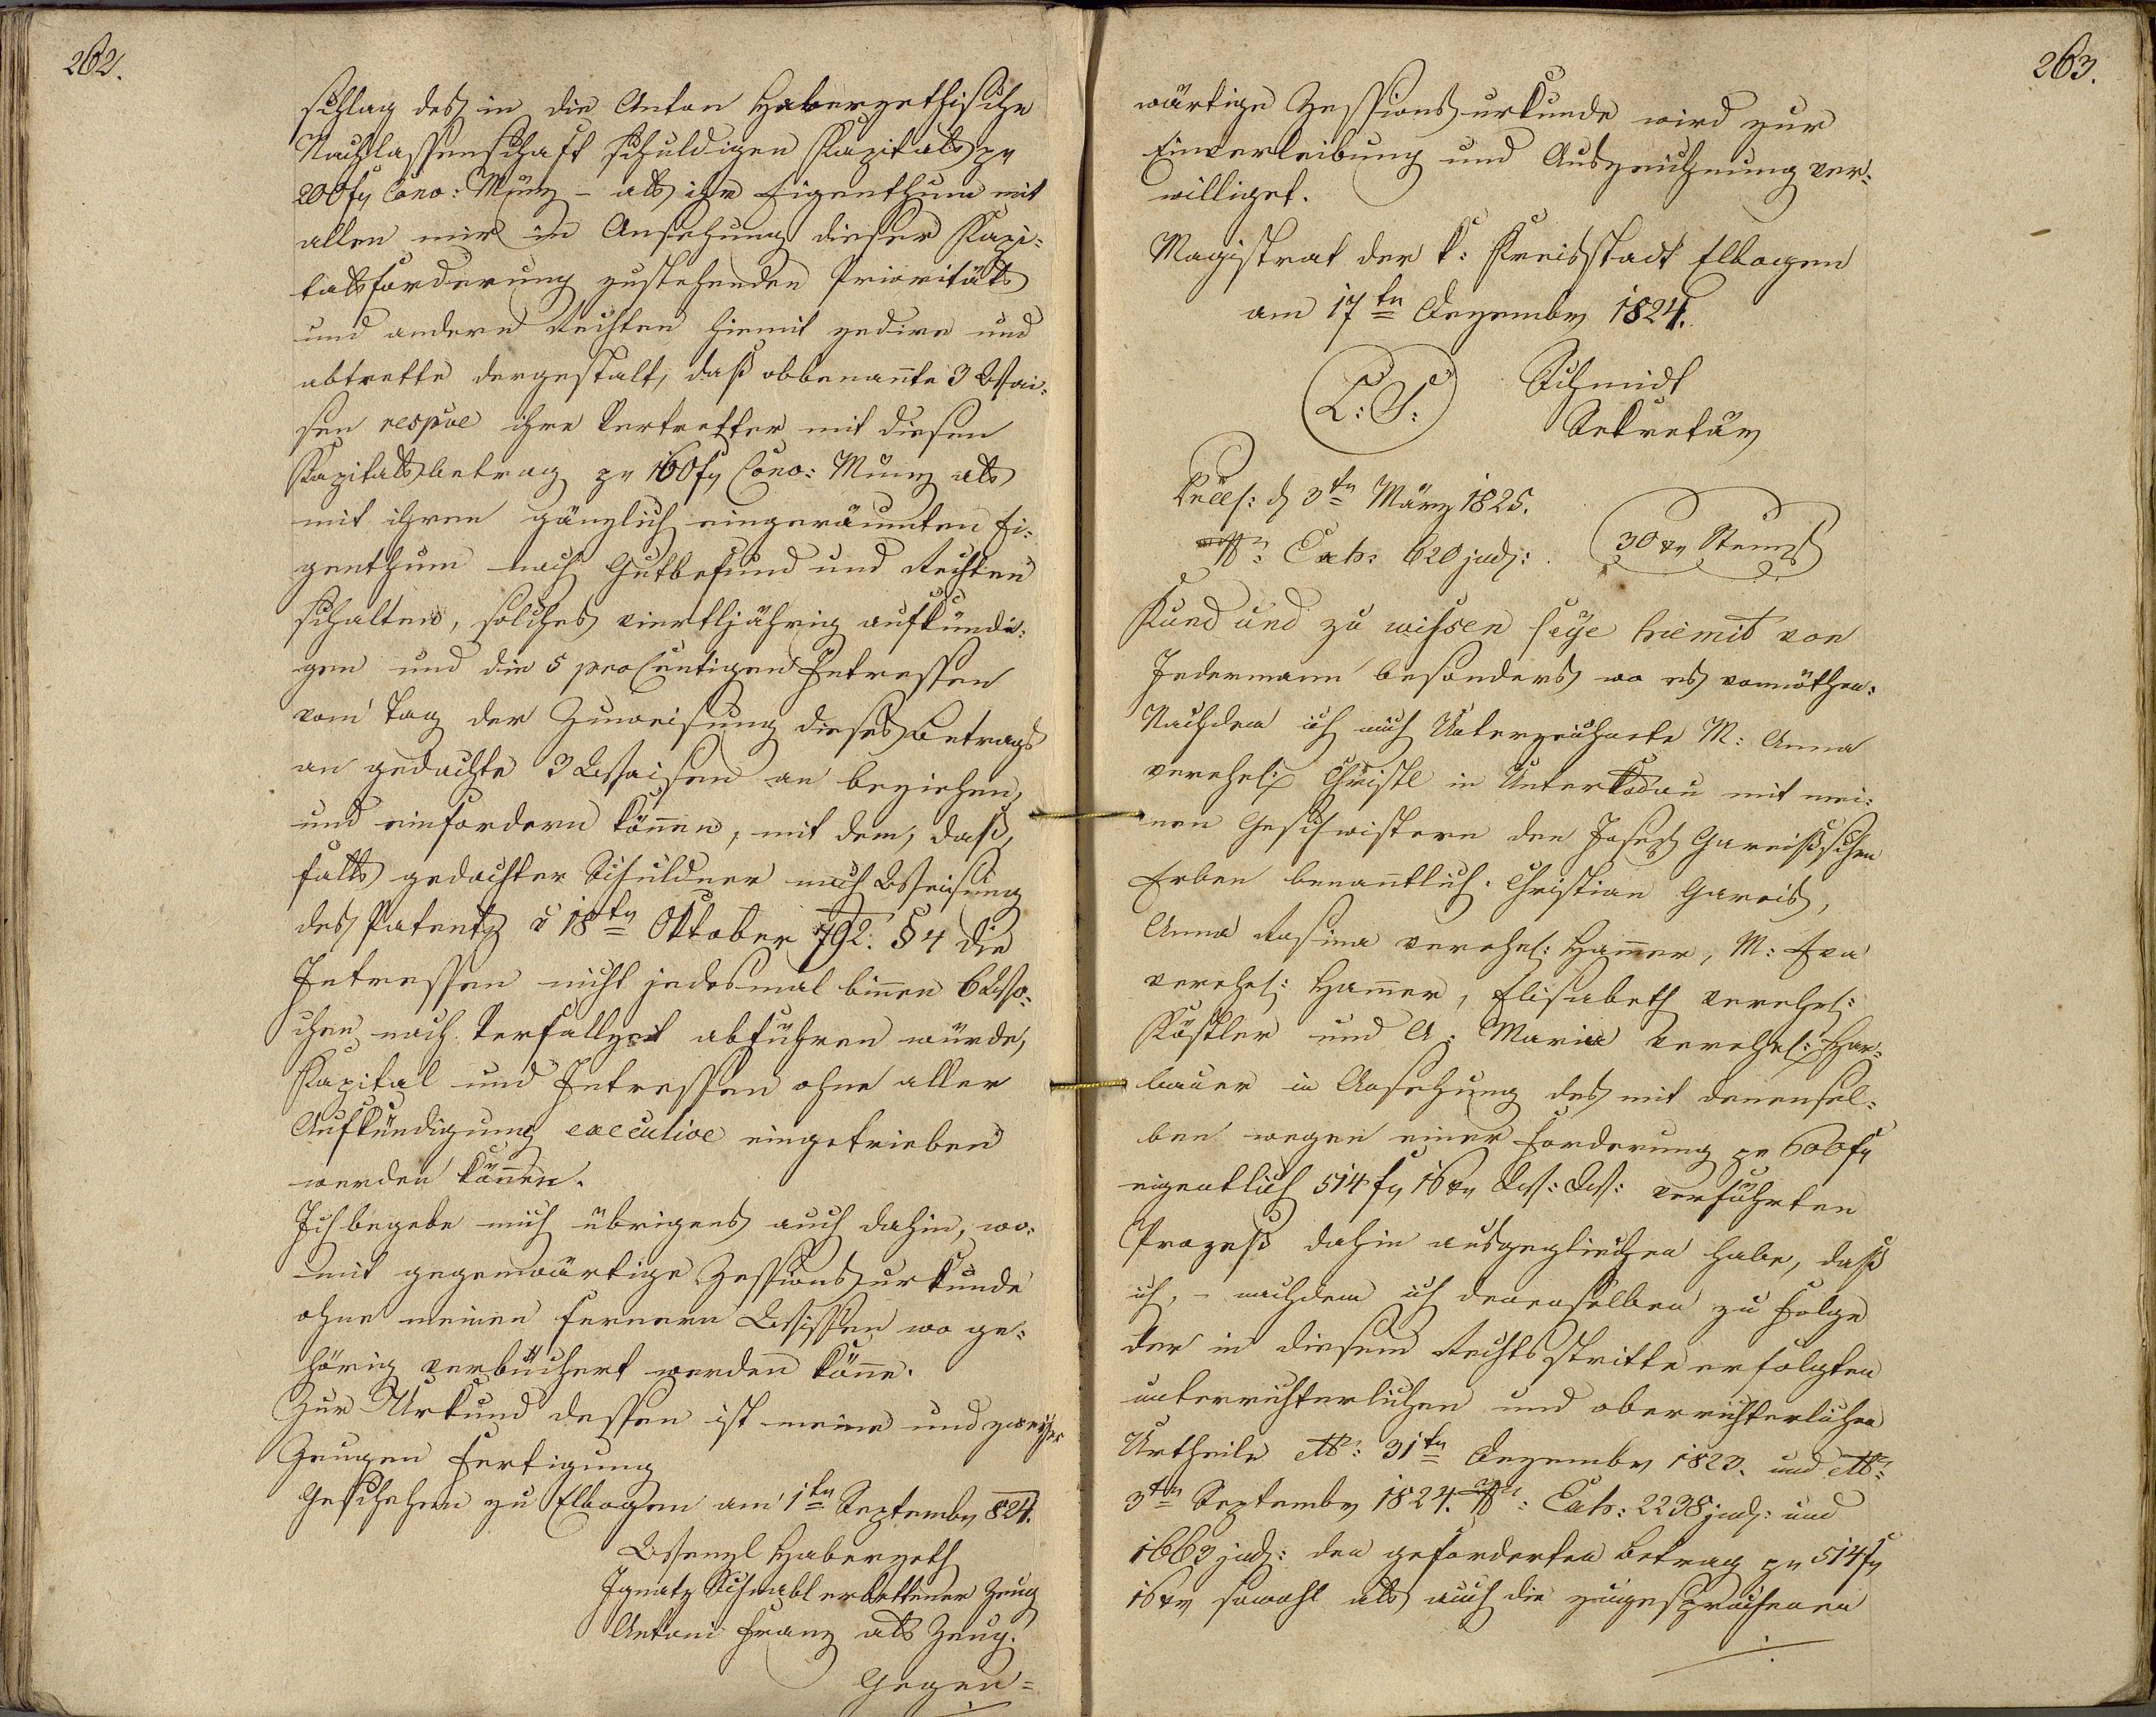 262.
schlag des in die Anton Haberzethische
Nachlassenschaft schuldigen Kapitals pr
200 f Conv: Münz – als ihr Eigenthum mit
allen mir in Ansehung dieser Kapi-
talsforderung zustehenden Prioritäts
und andern Rechten hiemit zedire und
abtrette dergestalt, daß obbenannte 3 Wai-
sen respive ihre Vertretter mit diesen
Kapitalsbetrag pr 160 f Conv: Münz als
mit ihren gänzlich eingeräumten Ei-
genthum nach Gutbefund und Rechten
schalten, solches vierteljährig aufkündi-
gen und die 5 pro Centigen Intressen
vom Tag der Zuweisung dieses Betrags
an gedachte 3 Waisen an beziehen,
und einfordern können, mit dem, daß,
falls gedachter Schuldner nach Weisung
des Patents v 18tn Oktober 792. § 4 die
Intressen nicht jedesmal binnen 6 Wo-
chen nach Verfallzeit abführen würde,
Kapital und Intressen ohne aller
Aufkündigung executive eingetrieben
werden können.
Ich begebe mich übrigens auch dahin, wo-
mit gegenwärtige Zessionsurkunde
ohne meinen fernern Wissen wo ge-
hörig verbüchert werden könne.
Zur Urkund dessen ist meine und zweyer
Zeugen Fertigung
Geschehen zu Elbogen am 1tn Septembr 824.
Wenzl Haberzeth
Ignatz Schnabl erbettener Zeug
Antoni Franz als Zeug.
Gegen-
263.
wärtige Zessionsurkunde wird zur
Einverleibung und Auszeichnung ver-
williget.
Magistrat der k: Kreisstadt Elbogen
am 17tn Dezembr 1824.
L: S: Schmidt
Sekretär
d 3tn März 1825.
Exh: 620 jud: 30 xr Stempl
Kund und zu wissen seye hiemit von
Jedermann besonders wo es vonnöthen:
Nachdem ich mich Unterzeichnete M: Anna
verehel: Christl in Unterkodau mit mei-
nen Geschwistern den Josef Gareißschen
Erben benanntlich: Christian Gareis,
Anna Rosina verehel: Hammer, M: Eva
verehel: Hammer, Elisabeth verehel:
Köstler und A: Maria verehel: Har-
bauer in Ansehung des mit denensel-
ben wegen einer Forderung pr 600 f
eigentlich 514 f 16 xr W: W: verführten
Prozeß dahin ausgeglichen habe, daß
ich, – nachdem ich denenselben zu Folge
der in diesem Rechtsstritte erfolgten
unterrichterlichen und oberrichterlichen
Urtheile 31tn Dezembr 1823. und
3tn Septembr 1824. Exh: 2238 jud: und
1663 jud: den geforderten Betrag pr 514 f
16 xr sowohl als auch die zugesprochenen